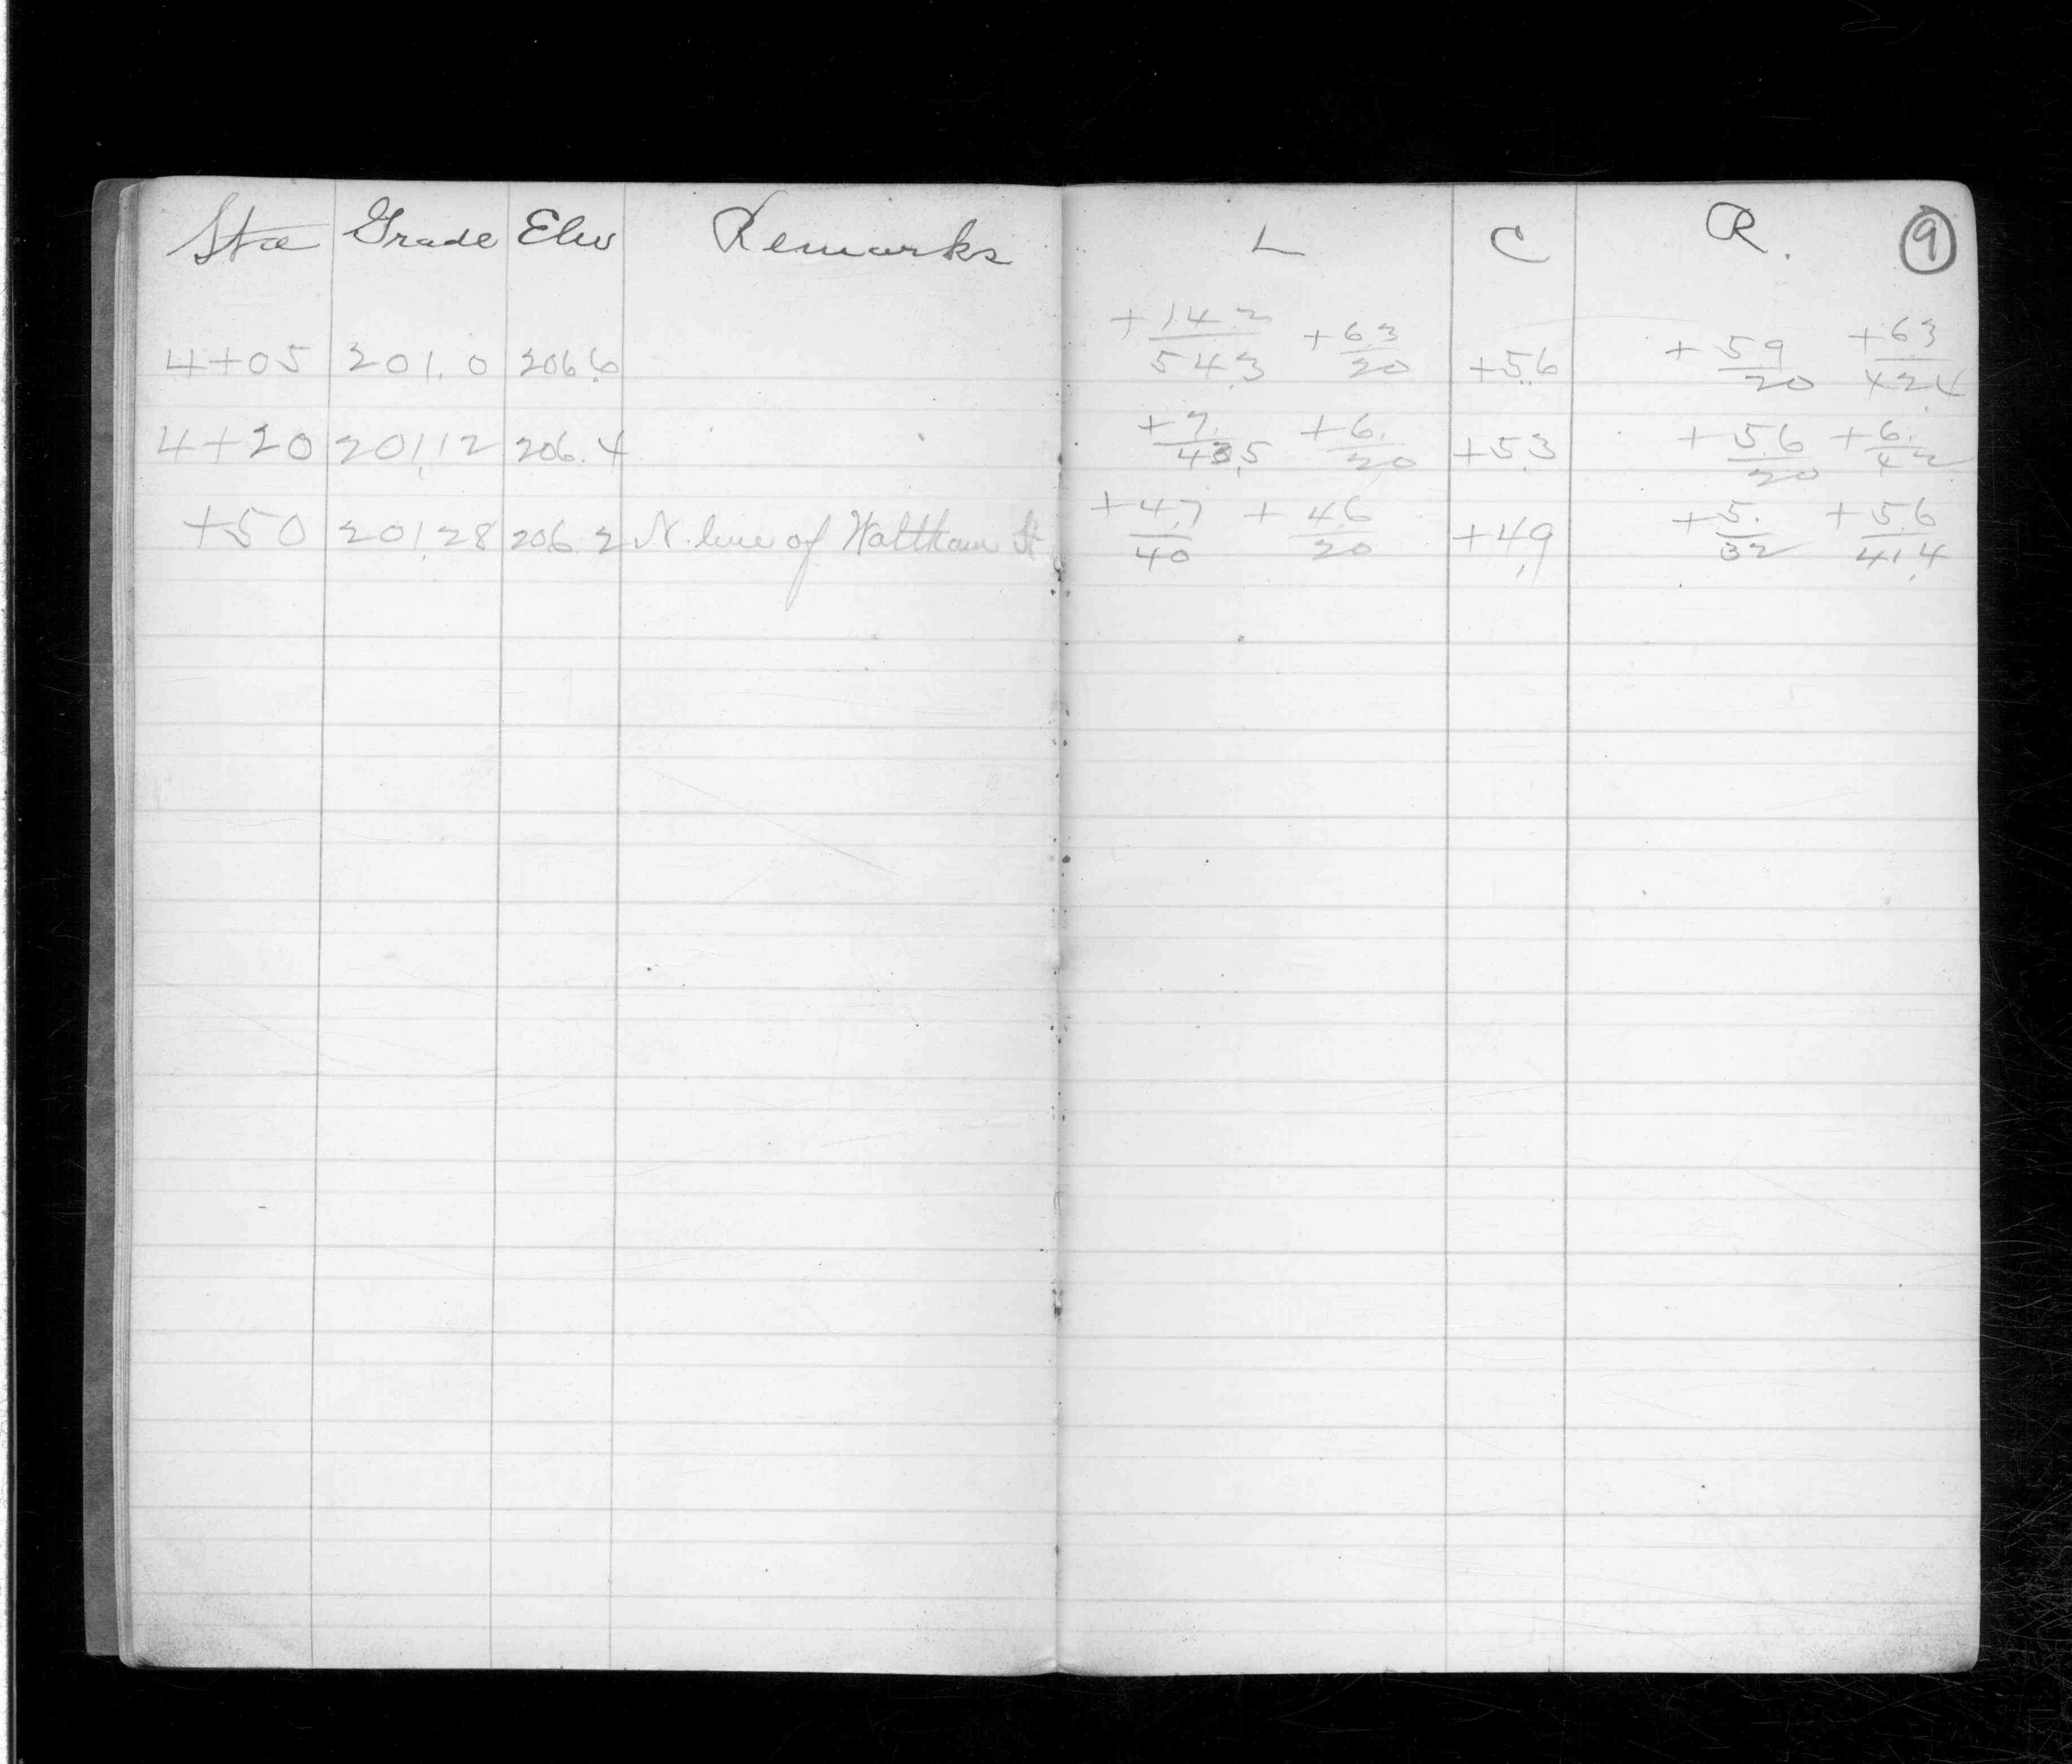 Sta Grade Elev Remarks L C R. 9
4+05 201.0 206.6 +14.2/54.3 +6.3/20 +5.6 +5.9/20 +6.3/42.4
4+20 201.12 206.4 +7./43.5 +6./20 +5.3 +5.6/20 +6./42
+50 201.28 206.2 N. line of Waltham St +4.7/40 +4.6/20 +4.9 +5./32 +5.6/41.4